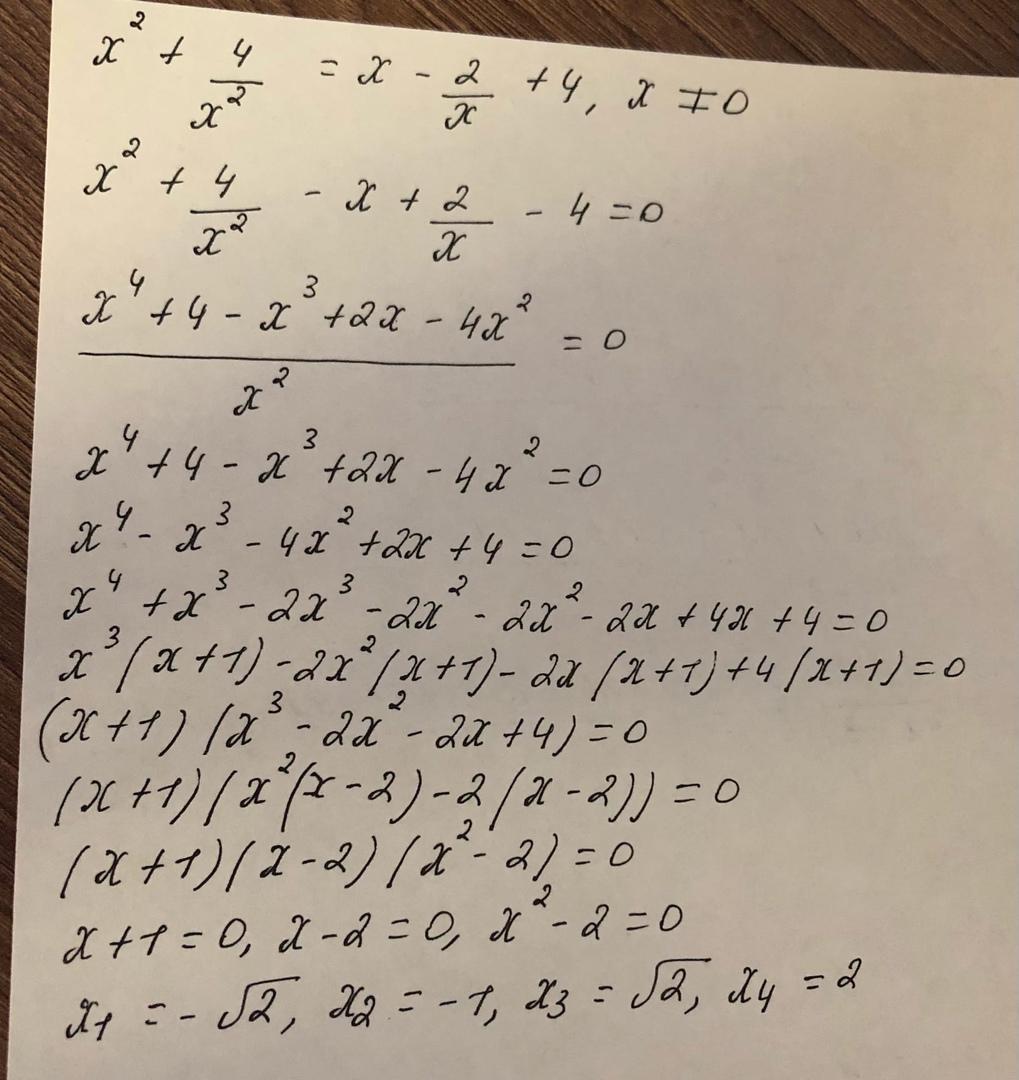 x² + 4/x² = x - 2/x + 4, x ≠ 0
x² + 4/x² - x + 2/x - 4 = 0
(x⁴ + 4 - x³ + 2x - 4x²)/x² = 0
x⁴ + 4 - x³ + 2x - 4x² = 0
x⁴ - x³ - 4x² + 2x + 4 = 0
x⁴ + x³ - 2x³ - 2x² - 2x² - 2x + 4x + 4 = 0
x³(x+1) - 2x²(x+1) - 2x(x+1) + 4(x+1) = 0
(x+1)(x³ - 2x² - 2x + 4) = 0
(x+1)(x²(x-2) - 2(x-2)) = 0
(x+1)(x-2)(x² - 2) = 0
x+1 = 0, x-2 = 0, x² - 2 = 0
x₁ = -√2, x₂ = -1, x₃ = √2, x₄ = 2